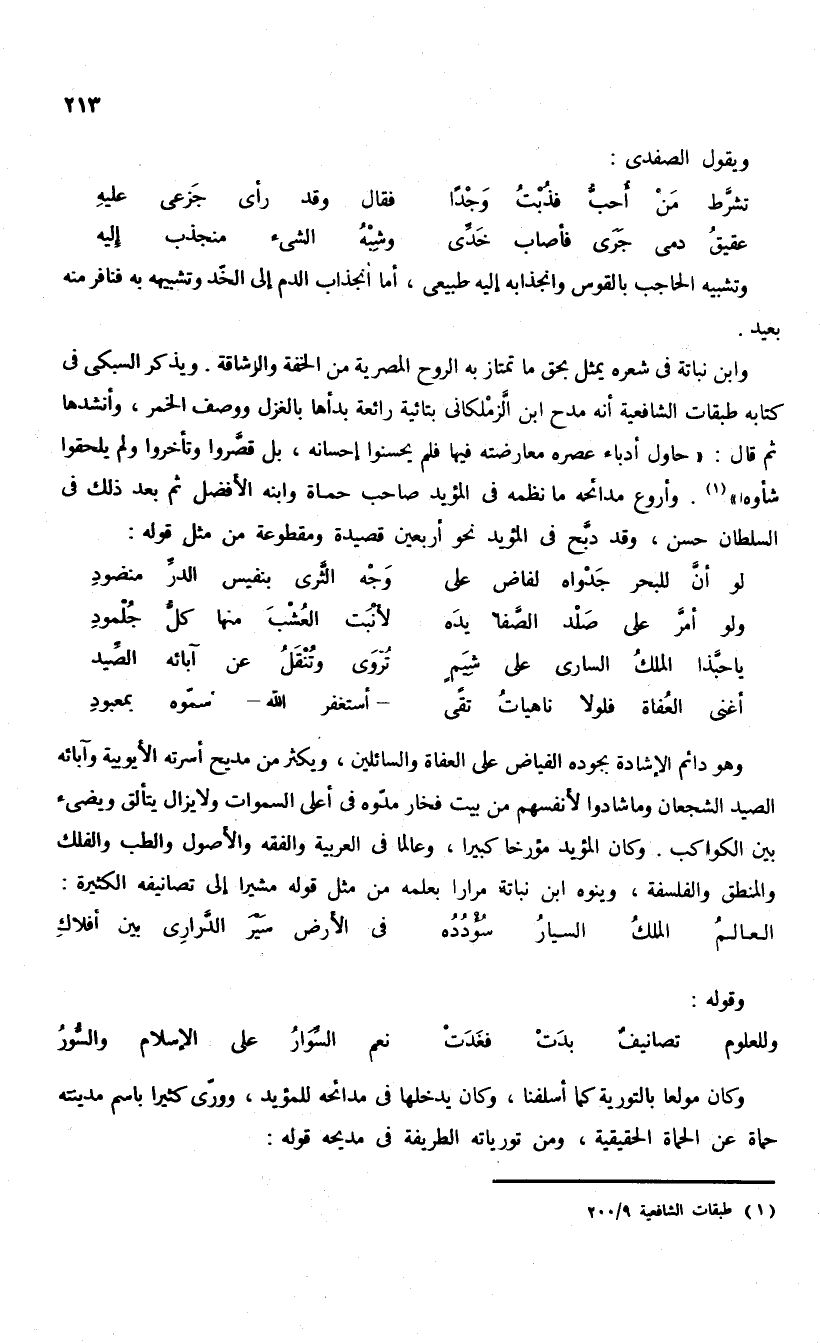 ٢١٣
ويقول الصفدى :
تشرَّط مَنْ أُحبُّ فذُبْتُ وَجْدًا فقال وقد رأى جَزعى عليهِ
عقيقُ دمى جَرَى فأصاب خَدِّى وشِبْهُ الشىء منجذب إليه
وتشبيه الحاجب بالقوس وانجذابه إليه طبيعى ، أما انجذاب الدم إلى الخّد وتشبيهه به فنافر منه
بعيد .
وابن نباتة فى شعره يمثل بحق ما تمتاز به الروح المصرية من الخفة والرشاقة . ويذكر السبكى فى
كتابه طبقات الشافعية أنه مدح ابن الزَّمْلكانى بتائية رائعة بدأها بالغزل ووصف الخمر ، وأنشدها
ثم قال : « حاول أدباء عصره معارضته فيها فلم يحسنوا إحسانه ، بل قصَّروا وتأخروا ولم يلحقوا
شأوه!»(١) . وأروع مدائحه ما نظمه فى المؤيد صاحب حماة وابنه الأفضل ثم بعد ذلك فى
السلطان حسن ، وقد دبَّج فى المؤيد نحو أربعين قصيدة ومقطوعة من مثل قوله :
لو أنَّ للبحر جَدْواه لفاض على وَجْه الثَّرى بنفيس الدرِّ منضودِ
ولو أمرَّ على صَلْد الصَّفا يدَه لأنْبَت العُشْبَ منها كلُّ جُلْمودِ
ياحبَّذا الملكُ السارى على شِيَمٍ تُرْوَى وتُنْقَلُ عن آبائه الصِّيد
أغنى العُفاة فلولا ناهياتُ تقًى – أستغفر الله – سمّوه بمعبودِ
وهو دائم الإشادة بجوده الفياض على العفاة والسائلين ، ويكثر من مديح أسرته الأيوبية وآبائه
الصيد الشجعان وماشادوا لأنفسهم من بيت فخار مدّوه فى أعلى السموات ولايزال يتألق ويضىء
بين الكواكب . وكان المؤيد مؤرخا كبيرا ، وعالما فى العربية والفقه والأصول والطب والفلك
والمنطق والفلسفة ، وينوه ابن نباتة مرارا بعلمه من مثل قوله مشيرا إلى تصانيفه الكثيرة :
العالمُ الملكُ السيارُ سُؤْدُدُه فى الأرض سَيْرَ الدَّرارِى بين أفلاكِ
وقوله :
وللعلوم تصانيفٌ بدَتْ فغَدَتْ نعم السِّوارُ على الإسلام والسُّورُ
وكان مولعا بالتورية كما أسلفنا ، وكان يدخلها فى مدائحه للمؤيد ، وورّى كثيرا باسم مدينته
حماة عن الحماة الحقيقية ، ومن تورياته الطريفة فى مديحه قوله :
(١) طبقات الشافعية ٢٠٠/٩